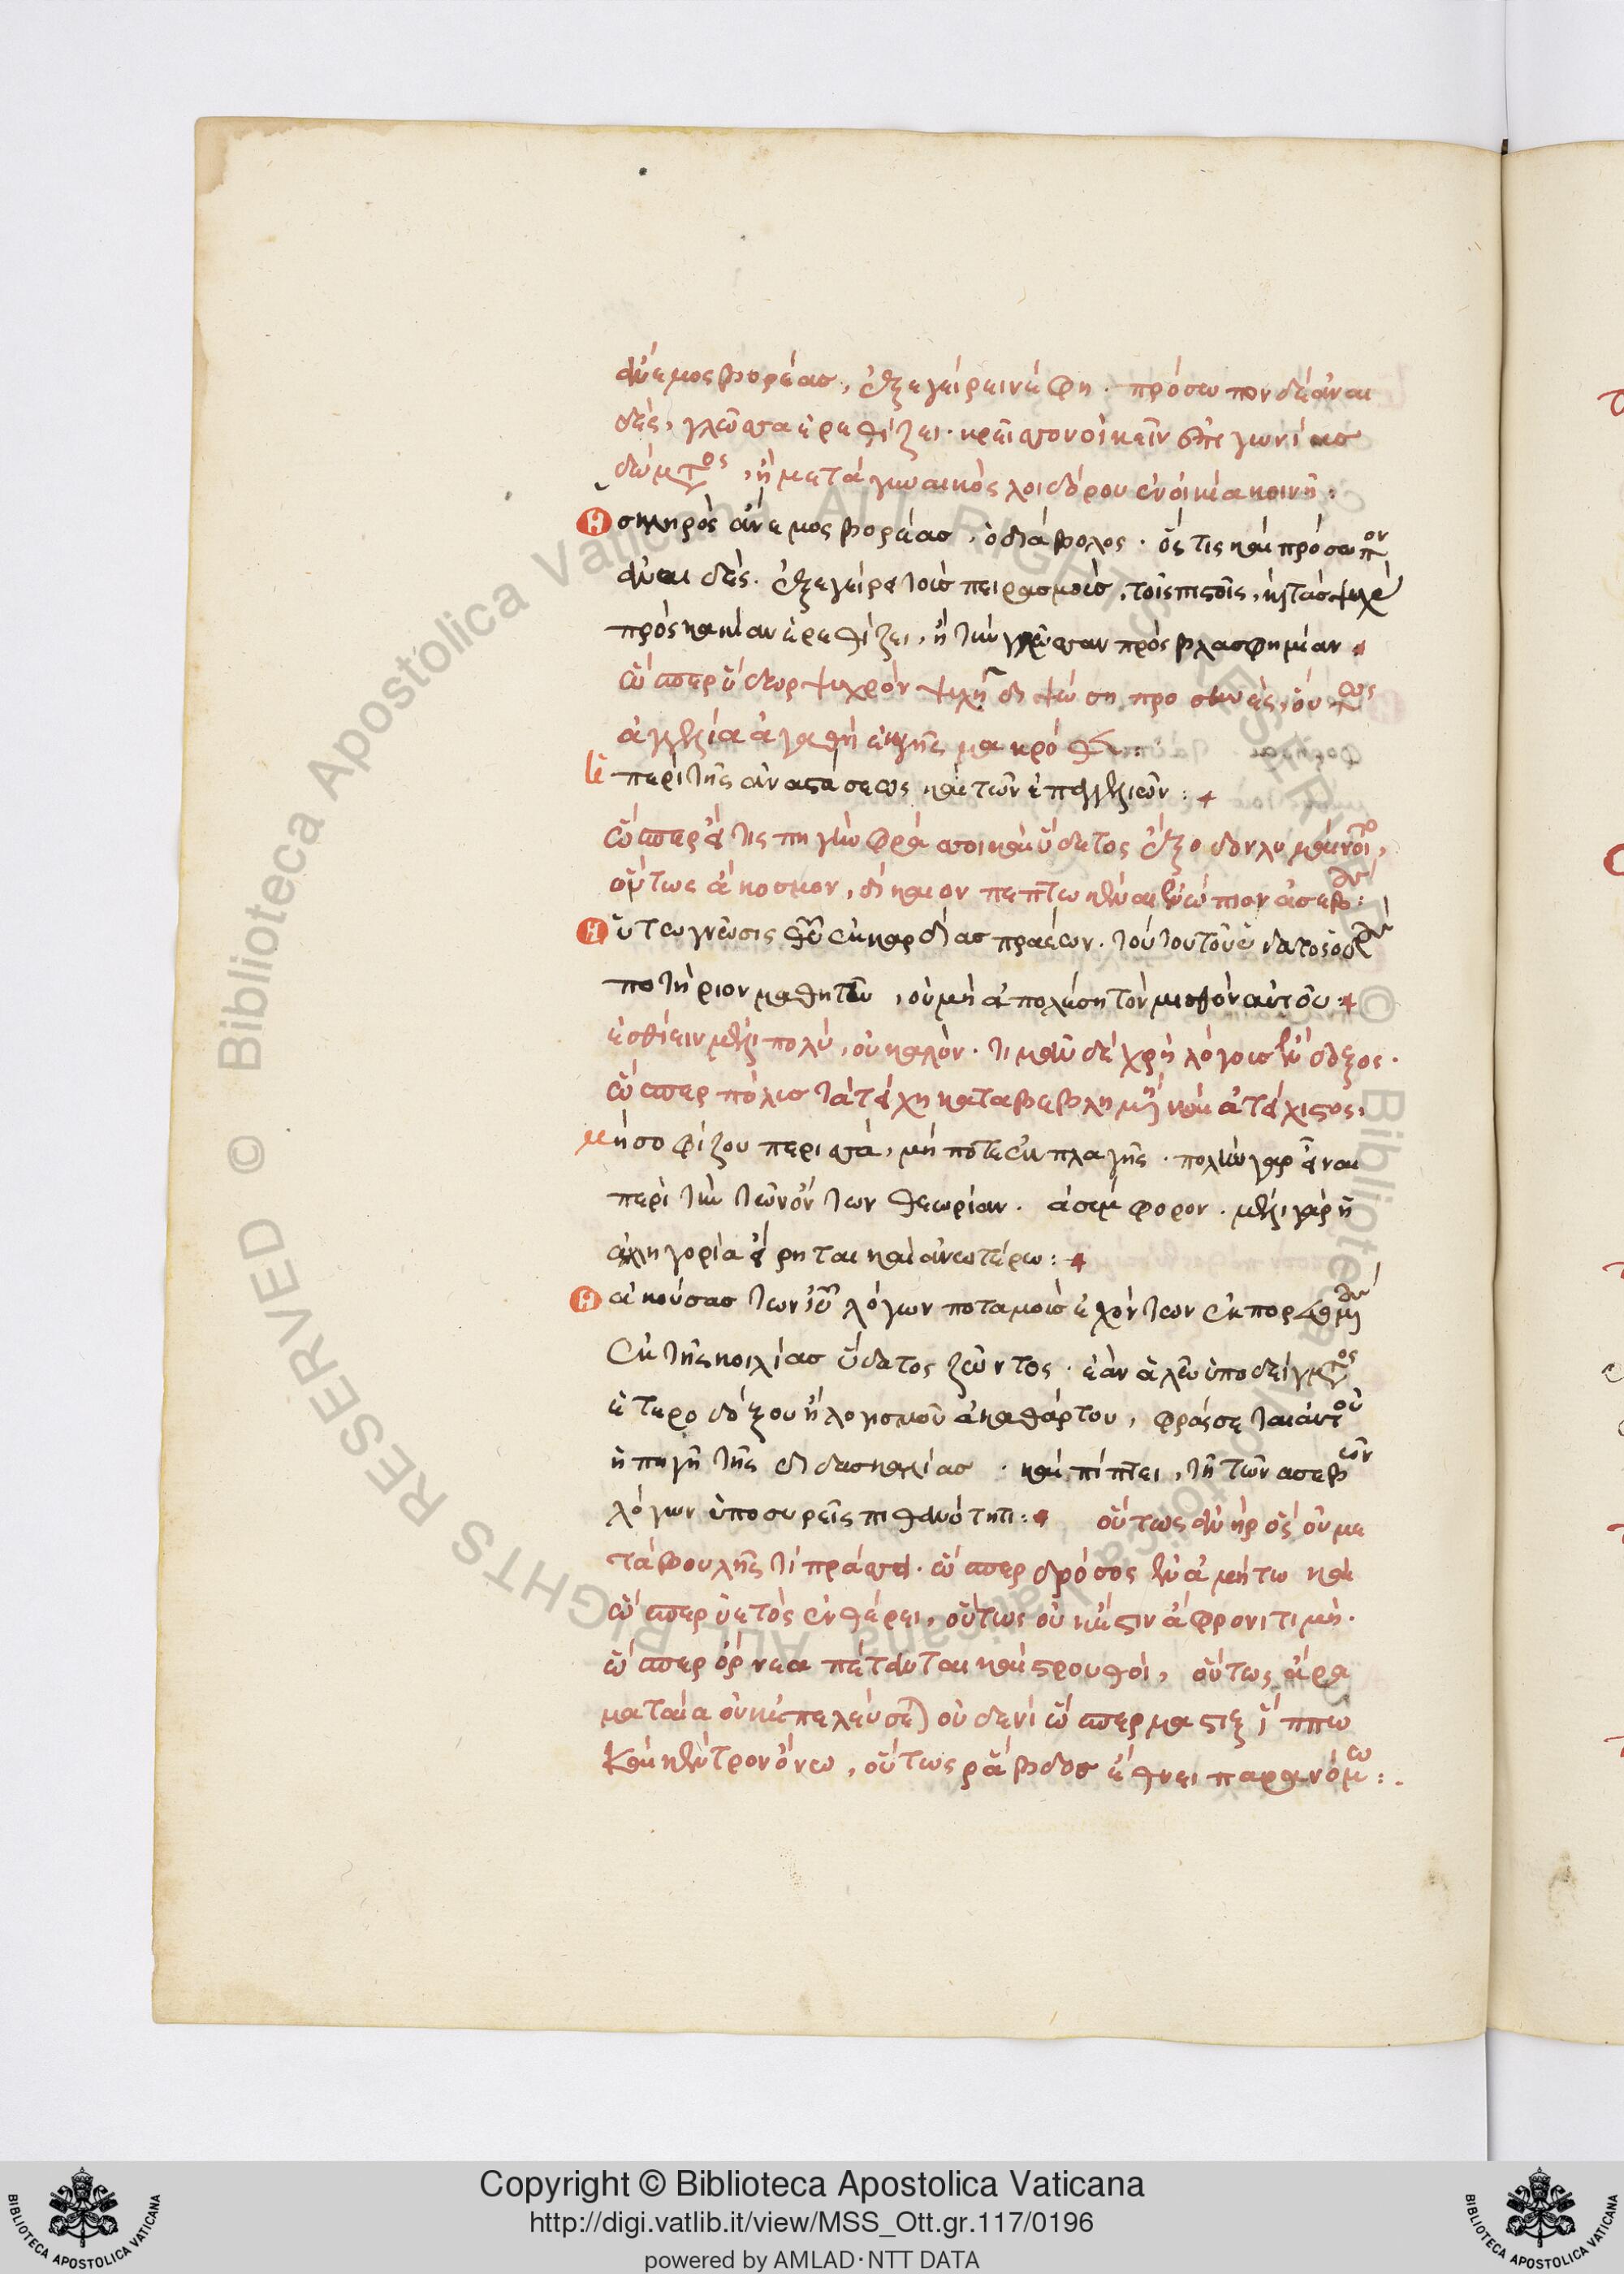 ἄνεμος βορέας, ἐξεγείρει νέφη · πρόσωπον δὲ ἀναι
δὲς, γλῶσσα ἐρεθίζει · κρεῖσσον οἰκεῖν ἐπὶ γωνίας
δώματος, ἢ μετὰ γυναικὸς λοιδόρου ἐν οἰκία κοινῆ :
σκληρὸς ἄνεμος βορέας, ὁ διάβολος · ὅς τις καὶ πρόσωπον
ἀναιδὲς. ἐξεγείρει τοὺς πειρασμοὺς, τοῖς πιστοῖς, καὶ τὰς ψυχὰς
πρὸς κακίαν ἐρεθίζει, ἢ τὴν γλῶσσαν πρὸς βλασφημίαν
ὥσπερ ὕδωρ ψυχρὸν ψυχῆ διψώση προσηνὲς, οὕτως
ἀγγελία ἀγαθὴ ἐκ γῆς μακρόθεν :
περὶ τῆς ἀναστάσεως καὶ τῶν ἐπαγγελιῶν :
ὥσπερ εἴ τις πηγὴν φράσσοι καὶ ὕδατος ἔξοδον λυμαίνοιτο,
οὕτως ἄκοσμον, δίκαιον πεπτωκέναι ἐνώπιον ἀσεβ :
θεοῦ ἐκ καρδίας πραέων.
ποτήριον μαθητοῦ, οὐ μὴ ἀπολέση τὸν μισθὸν αὐτοῦ :
ἐσθίειν μέλι πολὺ, οὐ καλὸν · τιμᾶν δὲ χρὴ λόγους ἐνδόξους ·
ὥσπερ πόλις τὰ τείχη καταβεβλημένη καὶ ἀτείχιστος,
μὴ σοφίζου περισσὰ, μή ποτε ἐκπλαγῆς · πολὺν γὰρ εἶναι
περὶ τὴν τῶν ὄντων θεωρίαν · ἀσύμφορον · μέλι γὰρ ἡ
ἀλληγορία εἴρηται καὶ ἀνωτέρω :
ἀκούσας τῶν ἰυ λόγων ποταμοὺς ἐχόντων ἐκπορευομένου
ἐκ τῆς κοιλίας ὕδατος ζῶντος · ἐὰν ἁλῶ ὑποδείγματος
ἑτεροδόξου ἢ λογισμοῦ ἀκαθάρτου, φράσσεται αὐτοῦ
ἡ πηγὴ τῆς διδασκαλίας · καὶ πίπτει, τῆ τῶν ἀσεβῶν
λόγων ὑποσυρεὶς πιθανότητι : οὕτως ἀνὴρ ὃς οὐ με
τὰ βουλῆς τὶ πράσσει · ὥσπερ δρόσος ἐν ἀμήτω καὶ
ὥσπερ ὑετὸς ἐν θέρει, οὕτως οὐκ ἔστιν ἄφρονι τιμὴ ·
ὥσπερ ὄρνεα πέτανται καὶ στρουθοὶ, οὕτως ἀρὰ
ματαία οὐκ ἐπελεύσεται οὐδενί ὥσπερ μάστιξ ἵππω
καὶ κέντρον ὄνω, οὕτως ῥάβδος ἔθνει παρανόμω :
Copyright © Biblioteca Apostolica Vaticana
http://digi.vatlib.it/view/MSS_Ott.gr.117/0196
powered by AMLAD·NTT DATA
BIBLIOTECA APOSTOLICA VATICANA
BIBLIOTECA APOSTOLICA VATICANA
© Biblioteca Apostolica Vaticana ALL RIGHTS RESERVED © Biblioteca Apostolica Vaticana ALL RIGHTS RESERVED